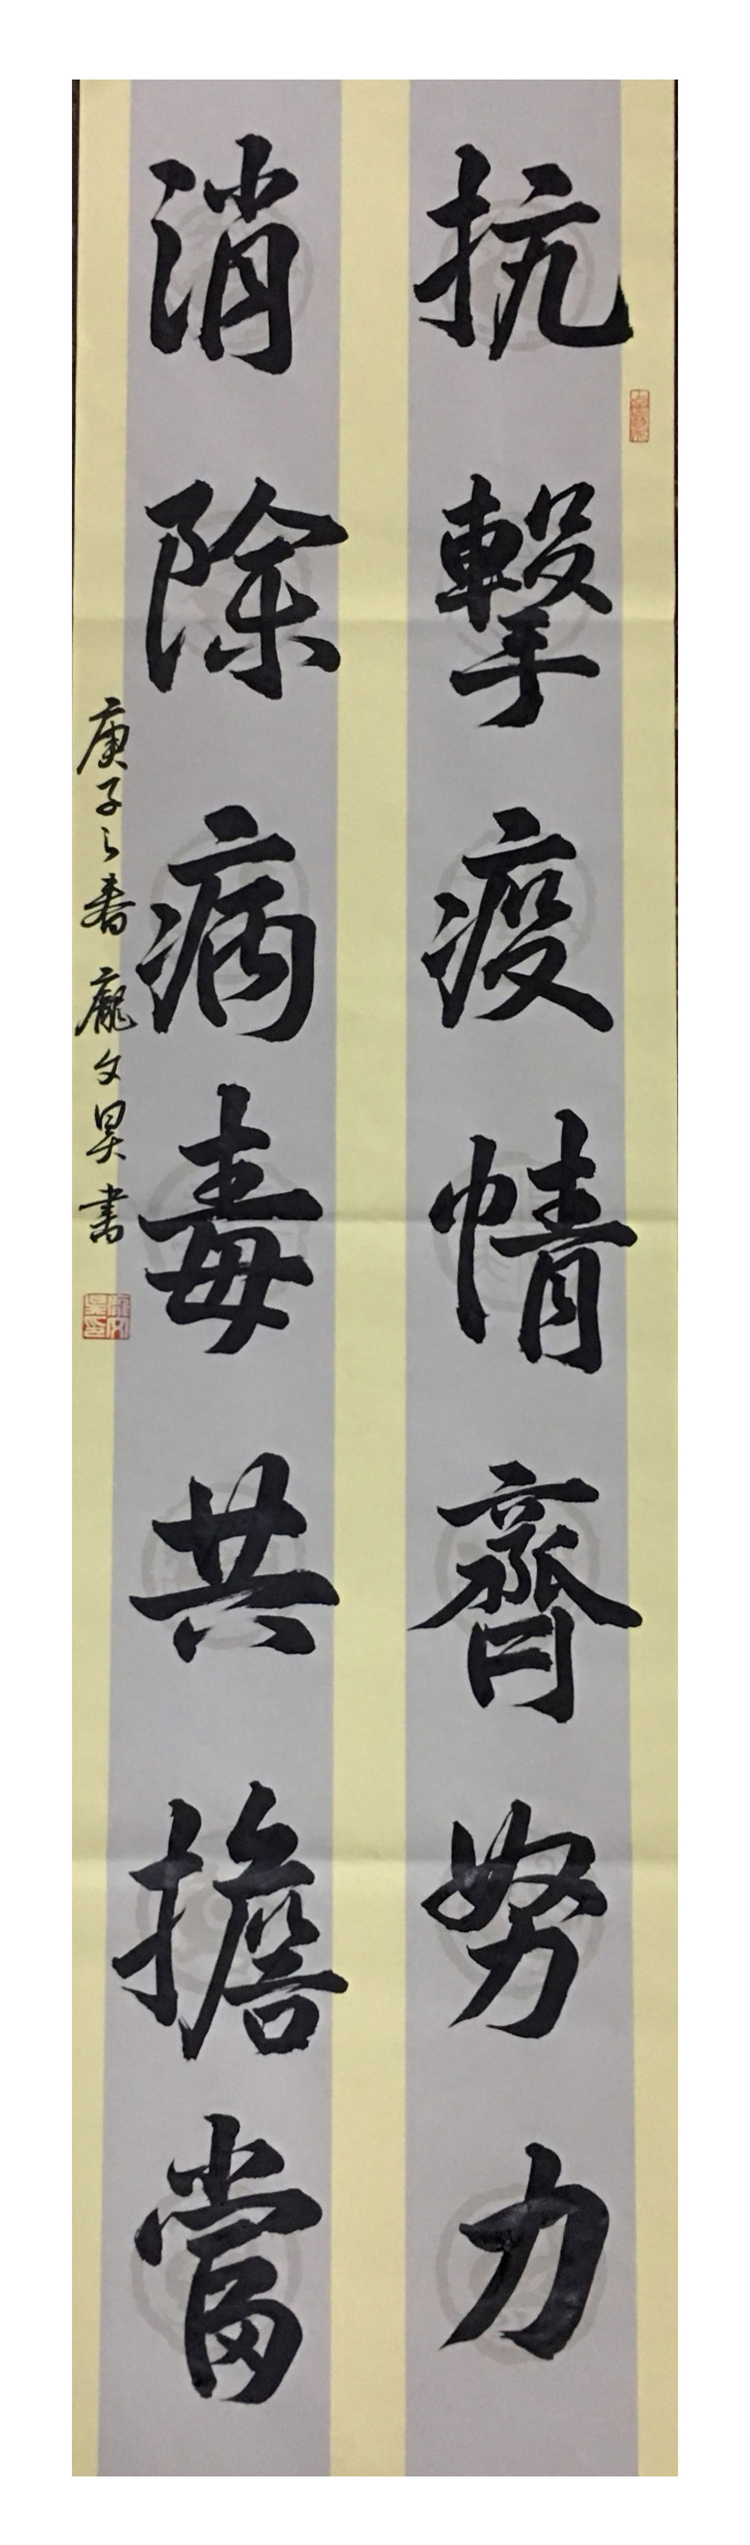 抗擊疫情齊努力
消除病毒共擔當
庚子之春龐文昊書